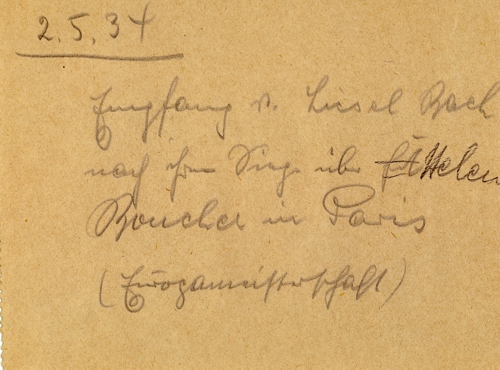 2.5.34
Empfang v. Liesel Bach
nach ihrem Siege über Helen
Boucher in Paris
(Europameisterschaft)